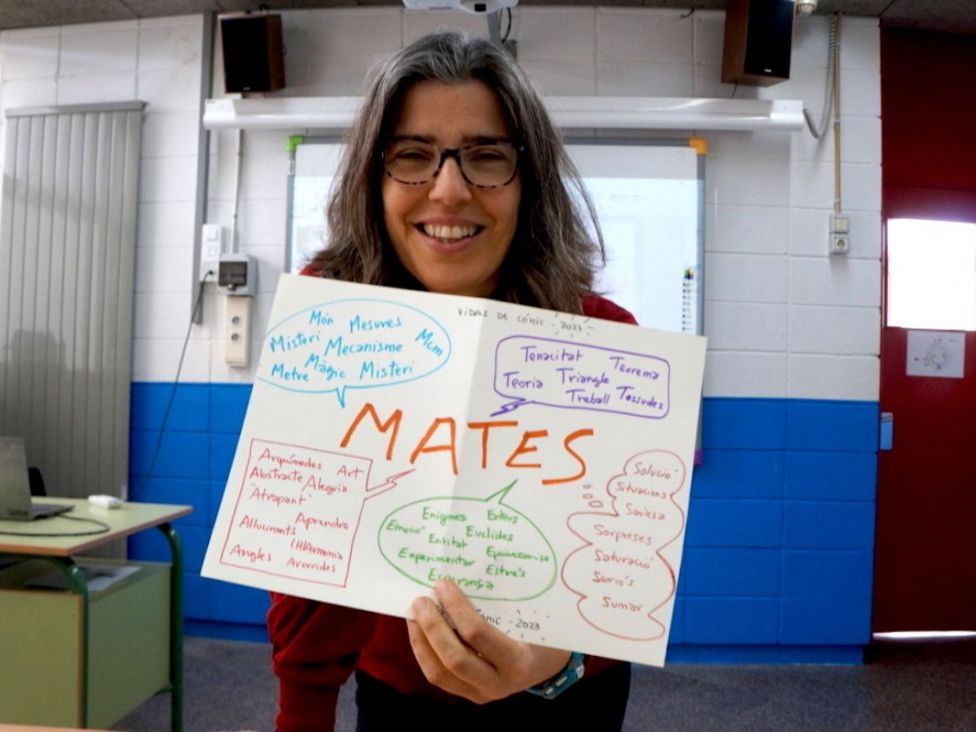 VIDAS DE CÓNIC - 2023
Món Mesures Mcm
Misteri Mecanisme
Màgic Misteri
Metre
Tenacitat Teorema
Teoria Triangle
Treball Tossudes
MATES
Arquímedes Art
Abstracte Alegria
"Atrapant"
Aprendre
Al·lucinants
(H)Armonia
Angles Avorrides
Enigmes Errors
Emoció Euclides
Entitat Equivocar-se
Experimentar Estrès
Esperança
Solució
Situacions
Saviesa
Sorpreses
Saturació
Seriós
Sumar
CÓNIC - 2023